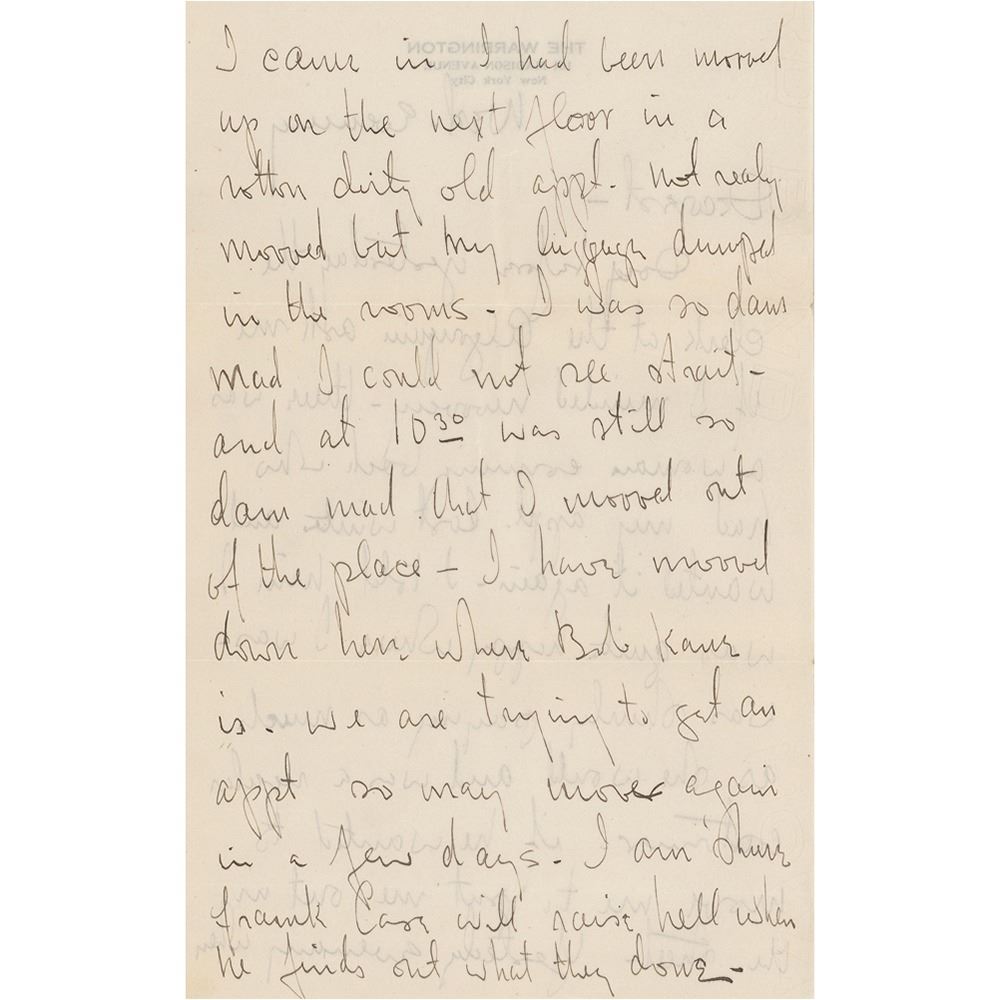 I came in I had been mooved
up on the next floor in a
rotton dirty old appt. not realy
mooved but my luggage dumped
in the rooms - I was so dam
mad I could not see strait -
and at 10³⁰ was still so
dam mad that I mooved out
of the place - I have mooved
down here where Bob Kane
is. we are trying to get an
appt so may move again
in a few days. I am shure
Frank Case will raise hell when
he finds out what they done -